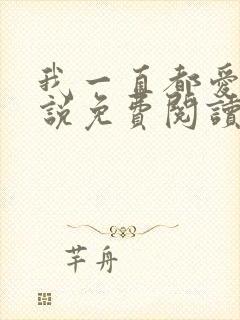 我一直都愛
說免費閱讀
芊舟